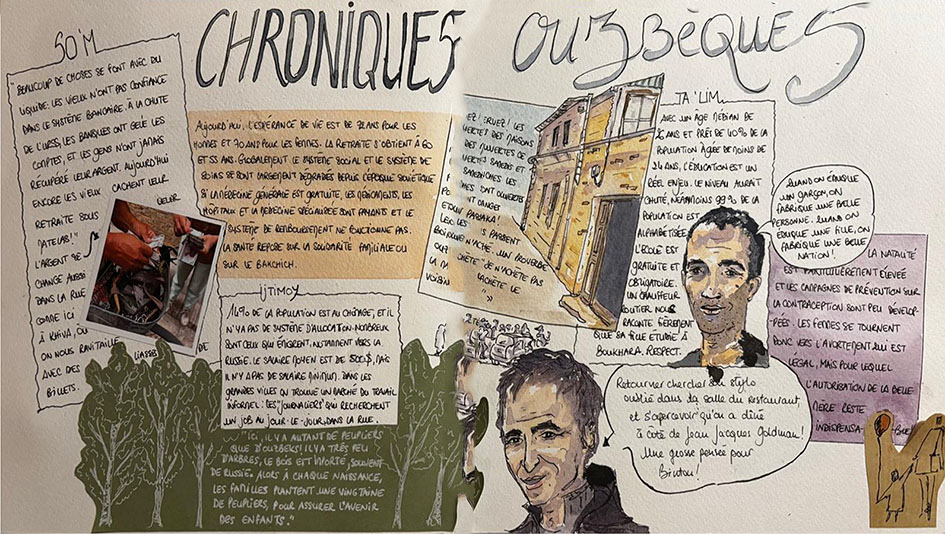 CHRONIQUES OUZBÈQUES
SO'M
"BEAUCOUP DE CHOSES SE FONT AVEC DU
LIQUIDE. LES VIEUX N'ONT PAS CONFIANCE
DANS LE SYSTÈME BANCAIRE. À LA CHUTE
DE L'URSS, LES BANQUES ONT GELÉ LES
COMPTES, ET LES GENS N'ONT JAMAIS
RÉCUPÉRÉ LEUR ARGENT. AUJOURD'HUI
ENCORE LES VIEUX CACHENT LEUR
RETRAITE SOUS LEUR
MATELAS!"
L'ARGENT SE
CHANGE AUSSI
DANS LA RUE
COMME ICI
À KHIVA, OÙ
ON NOUS RAVITAILLE
AVEC DES LIASSES DE
BILLETS.
AUJOURD'HUI, L'ESPÉRANCE DE VIE EST DE ANS POUR LES
HOMMES ET 70 ANS POUR LES FEMMES. LA RETRAITE S'OBTIENT À 60
ET 55 ANS. GLOBALEMENT LE SYSTÈME SOCIAL ET LE SYSTÈME DE
SOINS SE SONT LARGEMENT DÉGRADÉS DEPUIS L'ÉPOQUE SOVIÉTIQUE
SI LA MÉDECINE GÉNÉRALE EST GRATUITE, LES MÉDICAMENTS, LES
HÔPITAUX ET LA MÉDECINE SPÉCIALISÉE SONT PAYANTS ET LE
SYSTÈME DE REMBOURSEMENT NE FONCTIONNE PAS.
LA SANTÉ REPOSE SUR LA SOLIDARITÉ FAMILIALE OU
SUR LE BAKCHICH.
IJTIMOY
% DE LA POPULATION EST AU CHÔMAGE, ET IL
N'Y A PAS DE SYSTÈME D'ALLOCATION. NOMBREUX
SONT CEUX QUI ÉMIGRENT, NOTAMMENT VERS LA
RUSSIE. LE SALAIRE MOYEN EST DE 500$, MAIS
IL N'Y A PAS DE SALAIRE MINIMUM. DANS LES
GRANDES VILLES ON TROUVE UN MARCHÉ DU TRAVAIL
INFORMEL: DES "JOURNALIERS" QUI RECHERCHENT
UN JOB AU JOUR-LE-JOUR, DANS LA RUE.
"ICI, IL Y A AUTANT DE PEUPLIERS
QUE D'OUZBEKS! IL Y A TRÈS PEU
D'ARBRES, LE BOIS EST IMPORTÉ, SOUVENT
DE RUSSIE. ALORS À CHAQUE NAISSANCE,
LES FAMILLES PLANTENT UNE VINGTAINE
DE PEUPLIERS, POUR ASSURER L'AVENIR
DES ENFANTS."
DES MAISONS
OUVERTES
PROVERBE
N'ACHÈTE PAS
ACHÈTE LE
VOISIN
TA'LIM
AVEC UN ÂGE MÉDIAN DE
ANS ET PRÈS DE 40% DE LA
POPULATION ÂGÉE DE MOINS DE
24 ANS, L'ÉDUCATION EST UN
RÉEL ENJEU. LE NIVEAU AURAIT
CHUTÉ, NÉANMOINS 99% DE LA
POPULATION EST
ALPHABÉTISÉE.
L'ÉCOLE EST
GRATUITE ET
OBLIGATOIRE.
UN CHAUFFEUR
ROUTIER NOUS
RACONTE FIÈREMENT
QUE SA FILLE ÉTUDIE À
BOUKHARA. RESPECT.
QUAND ON ÉDUQUE
UN GARÇON, ON
FABRIQUE UNE BELLE
PERSONNE. QUAND ON
ÉDUQUE UNE FILLE, ON
FABRIQUE UNE BELLE
NATION!
LA NATALITÉ
EST PARTICULIÈREMENT ÉLEVÉE
ET LES CAMPAGNES DE PRÉVENTION SUR
LA CONTRACEPTION SONT PEU DÉVELOP-
PÉES. LES FEMMES SE TOURNENT
DONC VERS L'AVORTEMENT QUI EST
LÉGAL, MAIS POUR LEQUEL
L'AUTORISATION DE LA BELLE-
MÈRE RESTE
INDISPENSABLE
Retourner chercher son stylo
oublié dans la salle du restaurant,
et s'apercevoir qu'on a dîné
à côté de Jean Jacques Goldman!
Une grosse pensée pour